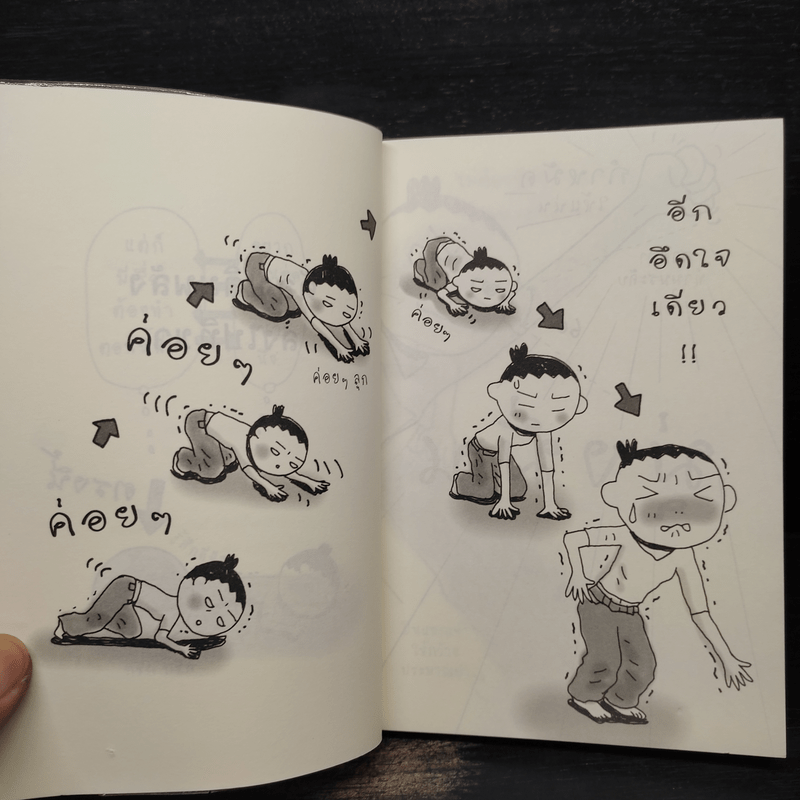 ค่อยๆ
ค่อยๆ ลุก
ค่อยๆ
ค่อยๆ
อีก
อึดใจ
เดียว
!!